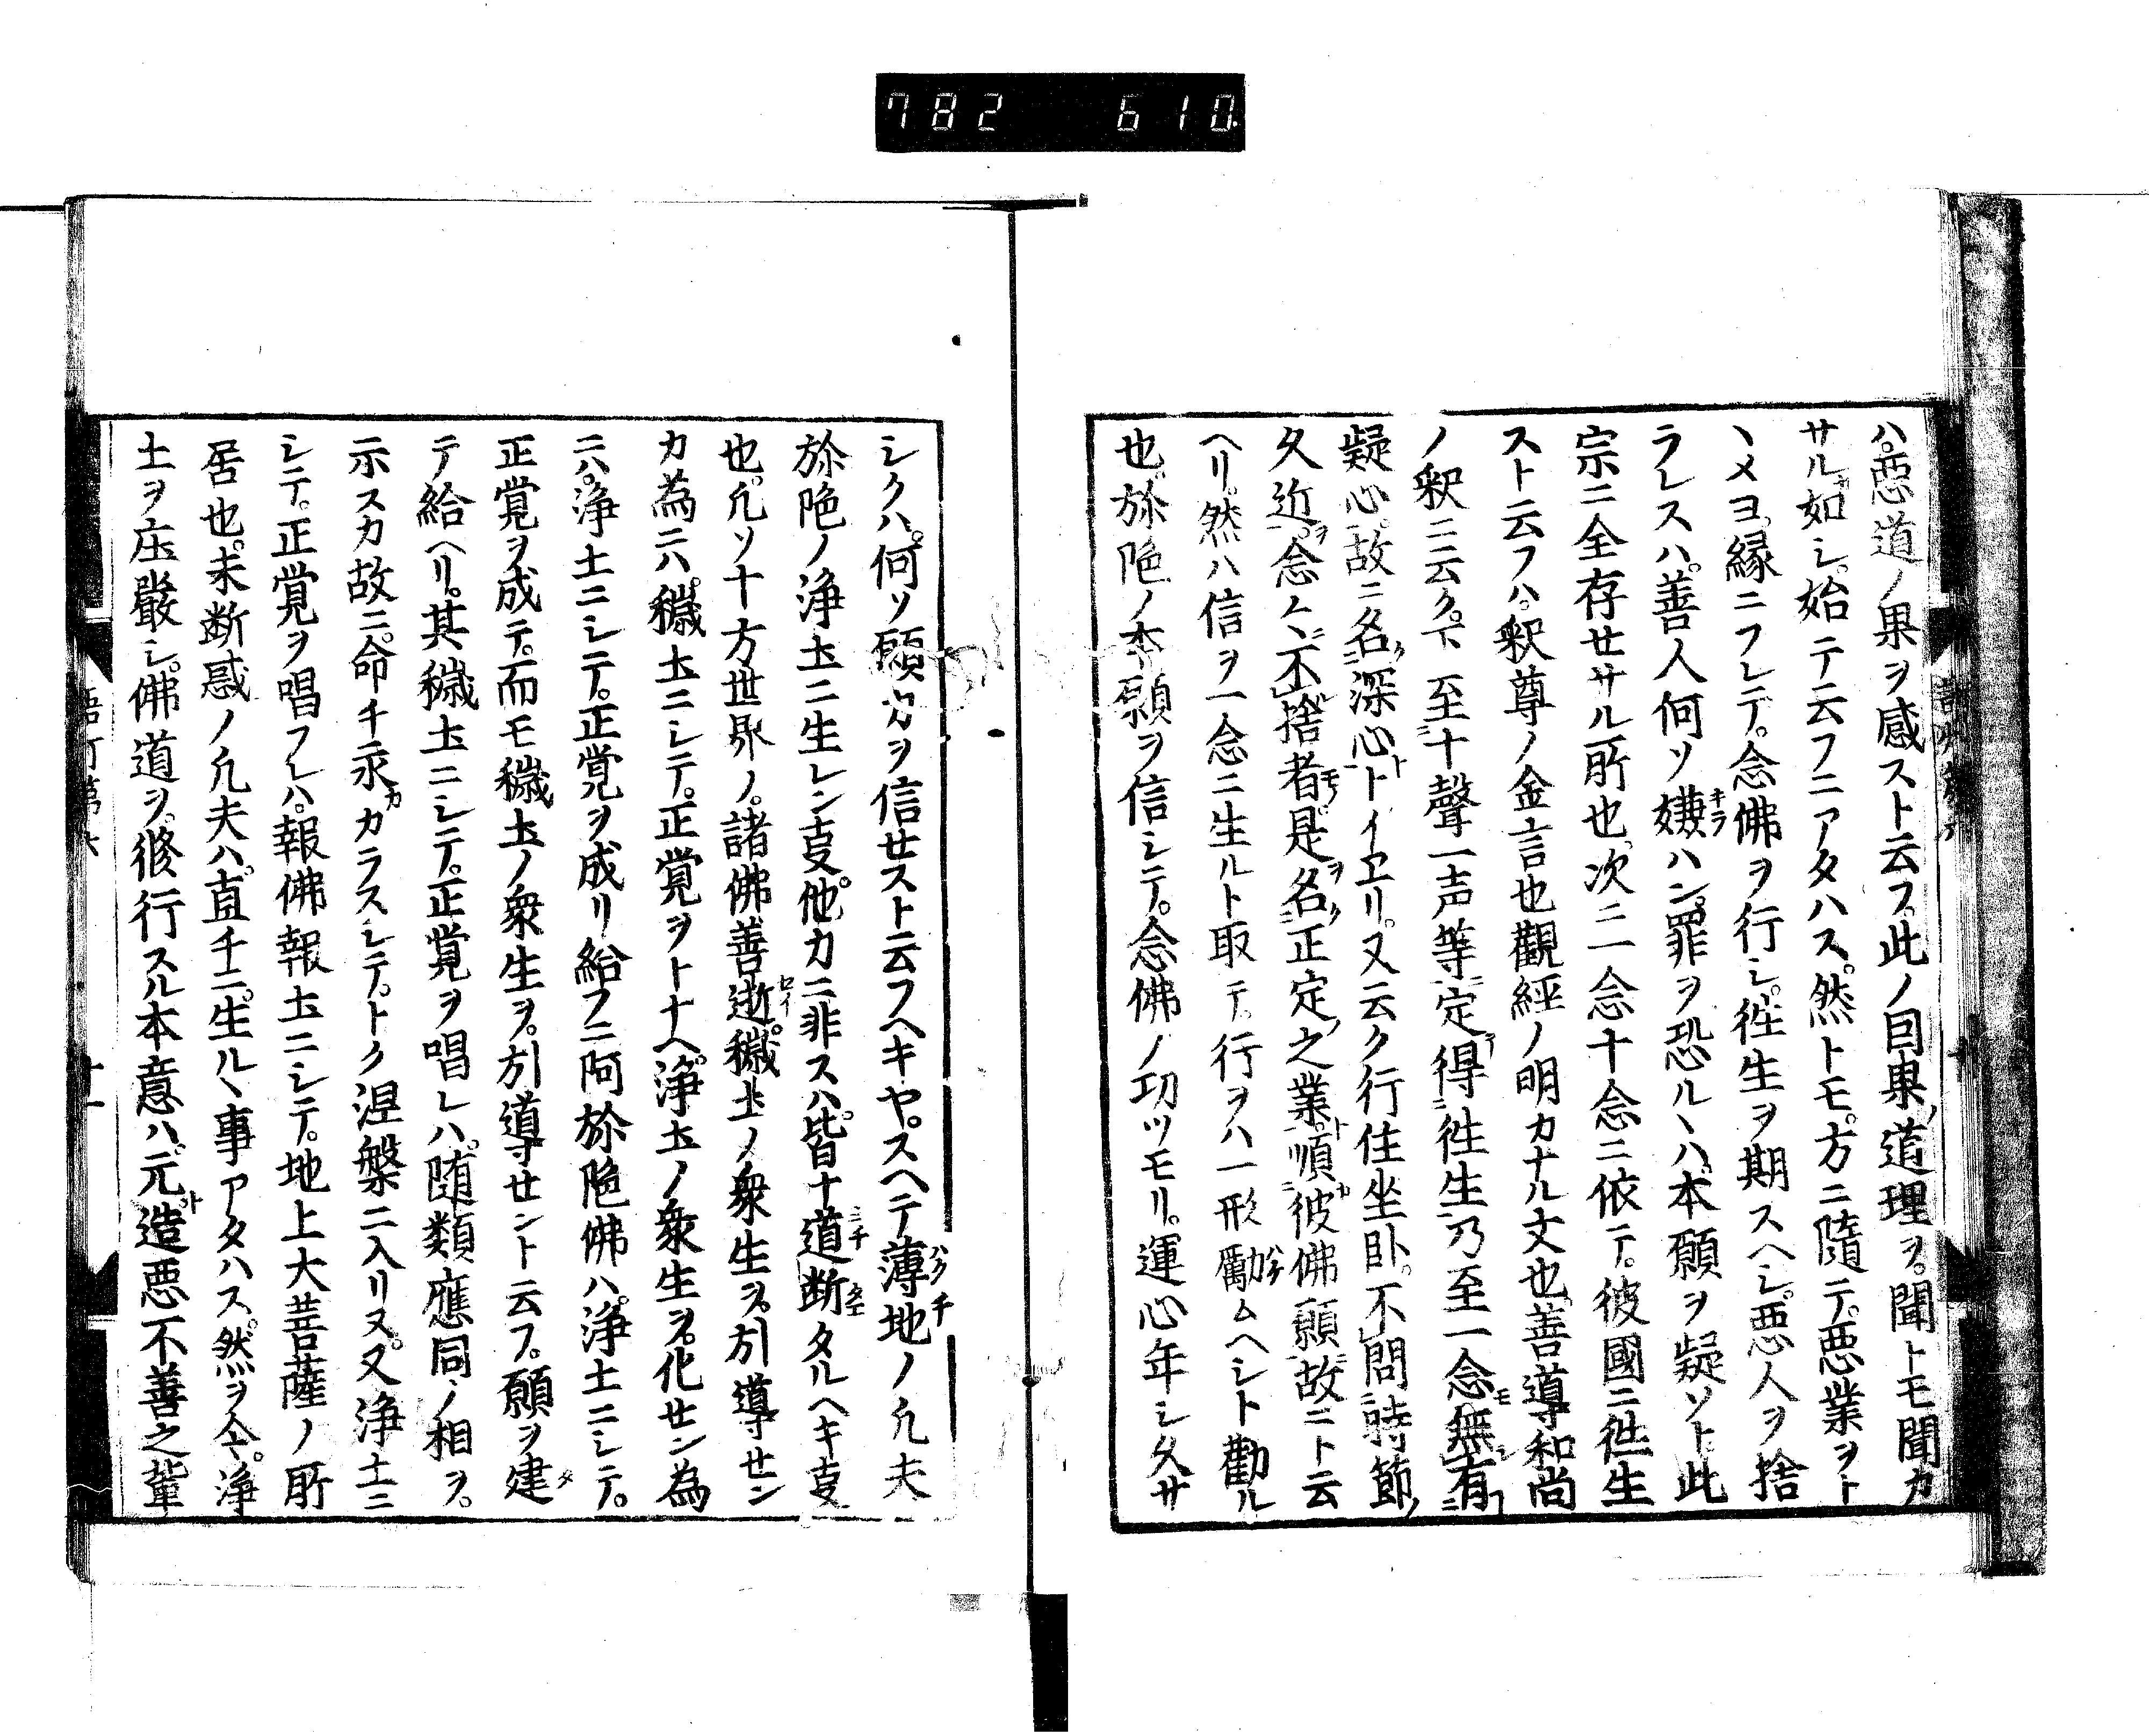 782 610
ハ。惡道ノ果ヲ感スト云フ。此ノ因果ノ道理ヲ。聞トモ聞カ
サル如シ。始テ云フニアタハス。然トモ。方ニ隨テ。惡業ヲト
ヽメヨ。縁ニフレテ。念佛ヲ行シ。徃生ヲ期スヘシ。惡人ヲ捨
ラレスハ。善人何ソ嫌キラハン。罪ヲ恐ルヽハ。本願ヲ疑ソト。此
宗ニ全存せサル所也。次ニ一念十念ニ依テ。彼國ニ徃生
スト云フハ。釈尊ノ金言也觀經ノ明カナル文也。善導和尚
ノ釈ニ云ク。下至十聲一声等定得徃生乃至一念無有
疑心。故ニ名深心トイヱリ。又云ク行住坐卧。不問時節
久近。念々不捨者是名正定之業。順彼佛願故ニト云
ヘリ。然ハ信ヲ一念ニ生ルト取テ。行ヲハ一形勵ハケムヘシト勸ル
也。旀陁ノ本願ヲ信シテ。念佛ノ功ツモリ。運心年シ久サ
シクハ。何ソ願力ヲ信せスト云フヘキヤ。スヘテ薄ハク地チノ凡夫
旀陁ノ浄土ニ生レン叓。他力ニ非スハ。皆十道ミチ断タエタルヘキ叓
也。凡ソ十方世界ノ。諸佛善逝セイ。穢土ノ衆生ヲ。引導せン
カ為ニハ。穢土ニシテ。正覚ヲトナヘ。浄土ノ衆生ヲ。化せン為
ニハ。浄土ニシテ。正覚ヲ成リ給フニ阿旀陁佛ハ。浄土ニシテ。
正覚ヲ成テ。而モ穢土ノ衆生ヲ。引導せント云フ。願ヲ建タ
テ給ヘリ。其穢土ニシテ。正覚ヲ唱レハ。随類應同ノ相ヲ。
示スカ故ニ。命チ永カカラスシテ。トク涅槃ニ入リヌ。又浄土ニ
シテ。正覚ヲ唱フレハ。報佛報土ニシテ。地上大菩薩ノ所
居也。未断惑ノ凡夫ハ。直チニ。生ルヽ事アタハス。然ヲ今。浄
土ヲ庄嚴シ。佛道ヲ。修行スル本意ハ。元ト造惡不善之輩